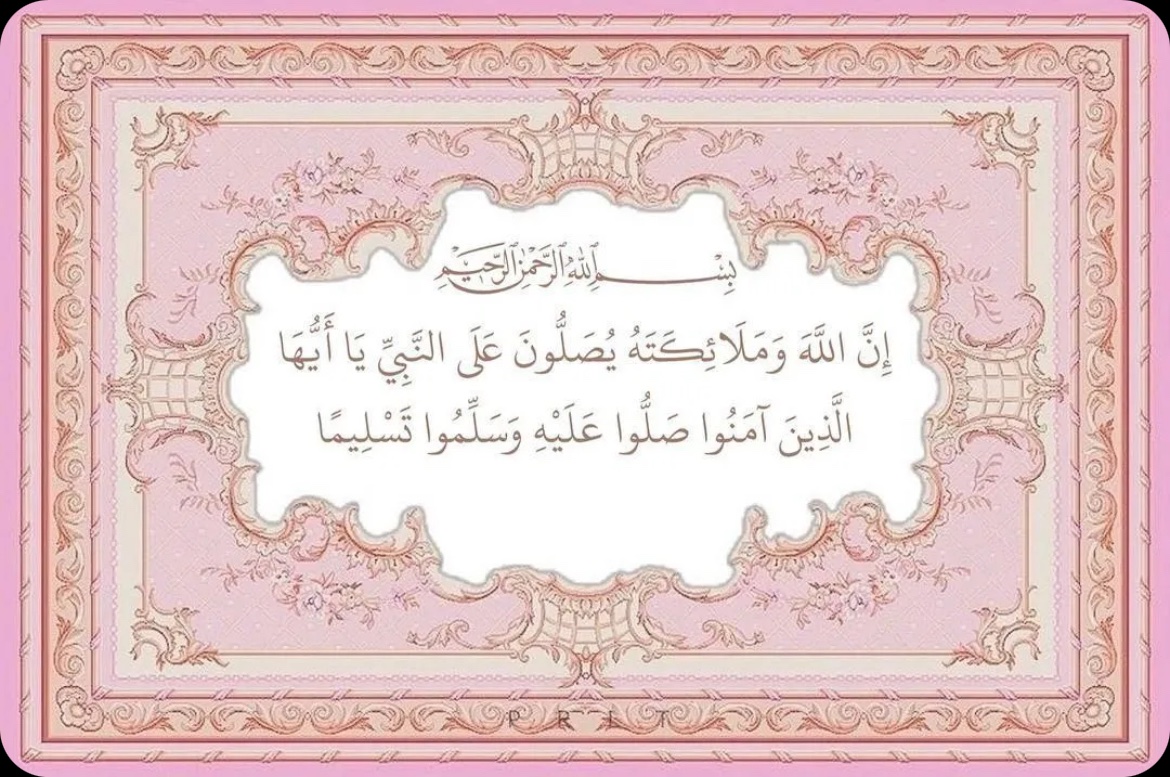 بِسْمِ ٱللَّهِ ٱلرَّحْمَٰنِ ٱلرَّحِيمِ
إِنَّ اللَّهَ وَمَلَائِكَتَهُ يُصَلُّونَ عَلَى النَّبِيِّ يَا أَيُّهَا
الَّذِينَ آمَنُوا صَلُّوا عَلَيْهِ وَسَلِّمُوا تَسْلِيمًا
P R I T